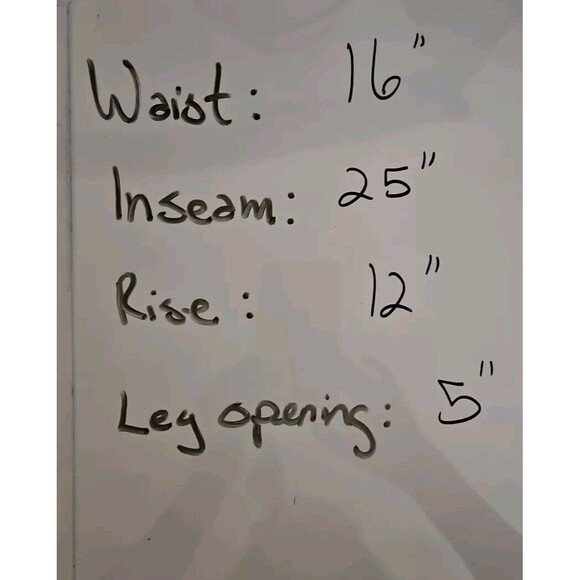 Waist: 16"
Inseam: 25"
Rise: 12"
Leg opening: 5"